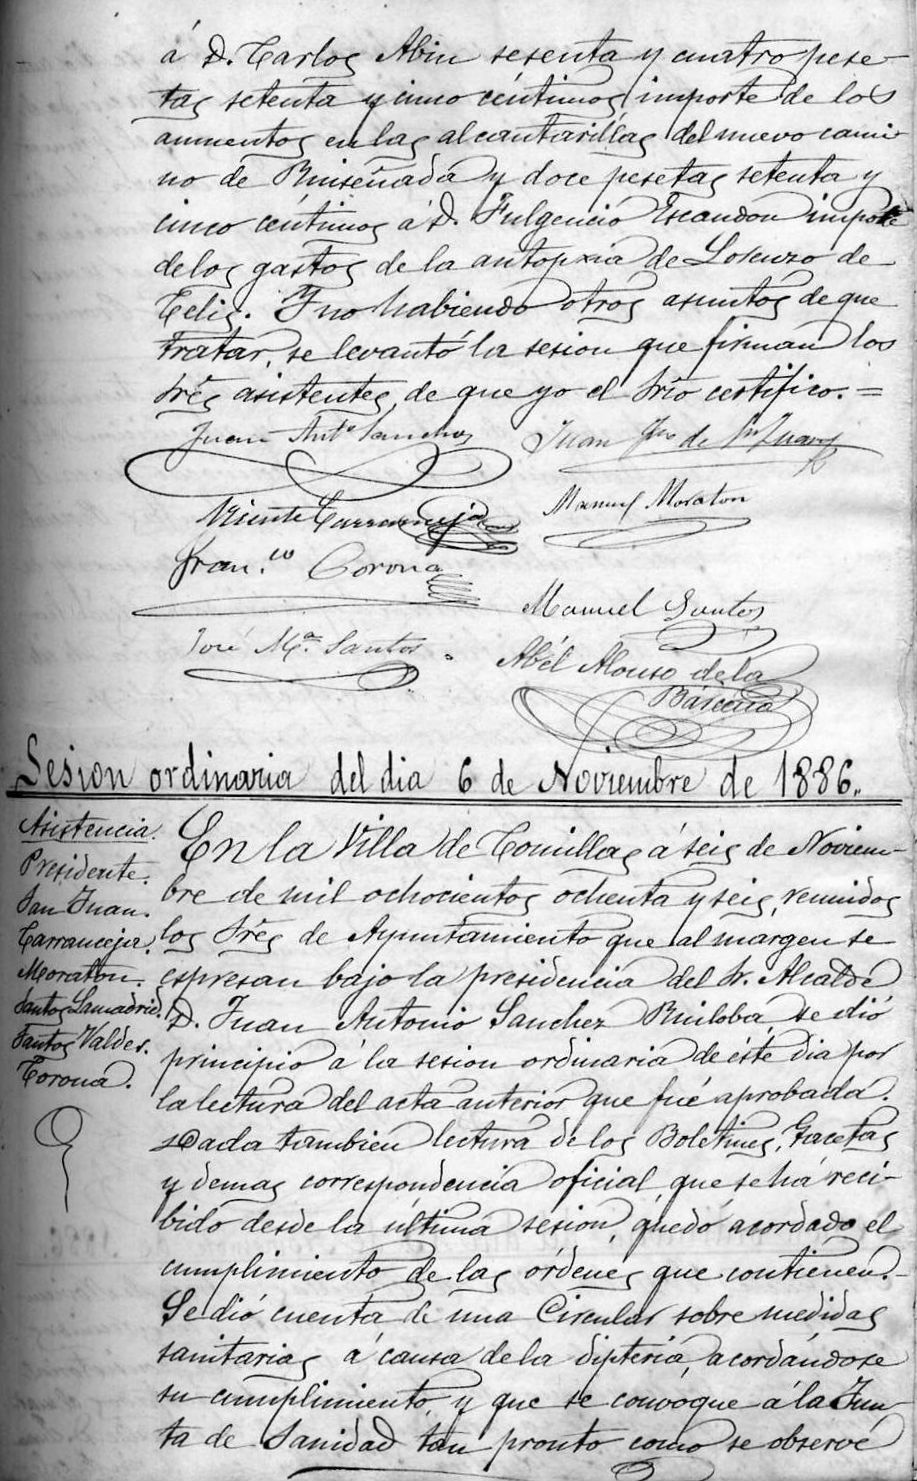 á D. Carlos Abin sesenta y cuatro pese-
tas setenta y cinco céntimos importe de los
aumentos en las alcantarillas del nuevo cami-
no de Ruiseñada y doce pesetas setenta y
cinco céntimos á D. Fulgencio Escandon importe
de los gastos de la autopxia de Lorenzo de
Celis. Y no habiendo otros asuntos de que
tratar, se levantó la sesion que firman los
Sres asistentes, de que yo el Srio certifico. =
Juan Anto Sanchez
Juan de Sn Juan
Vicente Carranceja
Manuel Moraton
Fran.co Corona
Manuel Santos
José Ma. Santos
Abél Alonso de la
Bárcena
Sesion ordinaria del dia 6 de Noviembre de 1886.
Asistencia.
Presidente.
San Juan.
Carranceja.
Moraton.
Santos Lamadrid.
Santos Valdes.
Corona.
En la Villa de Comillas á seis de Noviem-
bre de mil ochocientos ochenta y seis, reunidos
los Sres de Ayuntamiento que al margen se
espresan bajo la presidencia del Sr. Alcalde
D. Juan Antonio Sanchez Ruiloba se dió
principio á la sesion ordinaria de éste dia por
la lectura del acta anterior que fué aprobada.
Dada tambien lectura de los Boletines, Gacetas
y demas correspondencia oficial que se há reci-
bido desde la última sesion, quedó acordado el
cumplimiento de las órdenes que contienen.-
Se dió cuenta de una Circular sobre medidas
sanitarias á causa de la dipteria, acordándose
su cumplimiento, y que se convóque á la Jun-
ta de Sanidad tan pronto como se observe